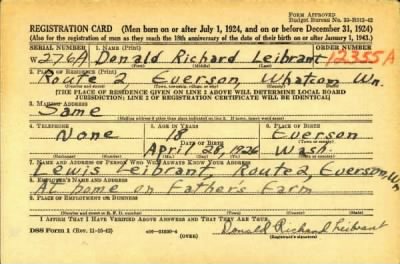 FORM APPROVED
Budget Bureau No. 33-R012-42
REGISTRATION CARD (Men born on or after July 1, 1924, and on or before December 31, 1924)
(Also for the registration of men as they reach the 18th anniversary of the date of their birth on or after January 1, 1943.)
SERIAL NUMBER 1. NAME (Print) ORDER NUMBER
W 276A Donald Richard Leibrant 12355A
2. PLACE OF RESIDENCE (Print)
Route 2 Everson, Whatcom Wn.
[THE PLACE OF RESIDENCE GIVEN ON LINE 2 ABOVE WILL DETERMINE LOCAL BOARD
JURISDICTION; LINE 2 OF REGISTRATION CERTIFICATE WILL BE IDENTICAL]
3. MAILING ADDRESS
Same
4. TELEPHONE 5. AGE IN YEARS 6. PLACE OF BIRTH
None 18 Everson
DATE OF BIRTH
April 28, 1926 Wash.
7. NAME AND ADDRESS OF PERSON WHO WILL ALWAYS KNOW YOUR ADDRESS
Lewis Leibrant, Route 2, Everson, Wn
8. EMPLOYER'S NAME AND ADDRESS
At home on Father's Farm
9. PLACE OF EMPLOYMENT OR BUSINESS
I AFFIRM THAT I HAVE VERIFIED ABOVE ANSWERS AND THAT THEY ARE TRUE.
DSS Form 1 (Rev. 11-16-42) (OVER) Donald Richard Leibrant
(Registrant's signature)